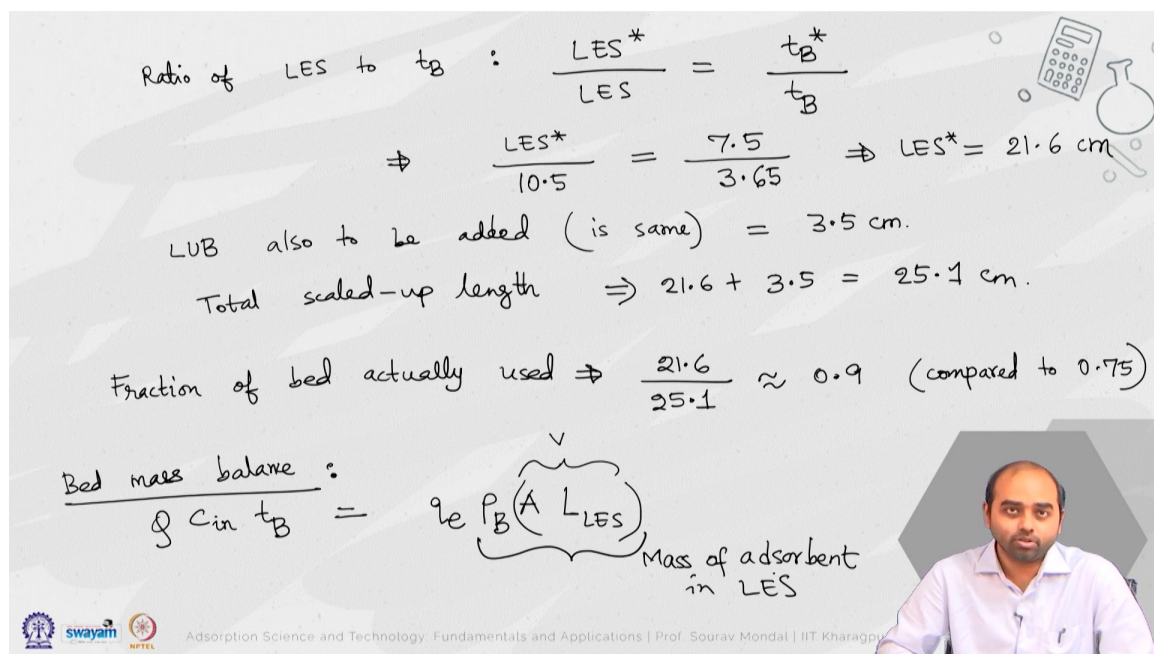 Ratio of LES to t_B : LES* / LES = t_B* / t_B
⇒ LES* / 10.5 = 7.5 / 3.65 ⇒ LES* = 21.6 cm
LUB also to be added (is same) = 3.5 cm.
Total scaled-up length ⇒ 21.6 + 3.5 = 25.1 cm.
Fraction of bed actually used ⇒ 21.6 / 25.1 ≈ 0.9 (compared to 0.75)
Bed mass balance :
V
Q C_in t_B = q_e ρ_B (A L_LES)
Mass of adsorbent
in LES
swayam
NPTEL
Adsorption Science and Technology: Fundamentals and Applications | Prof. Sourav Mondal | IIT Kharagpu